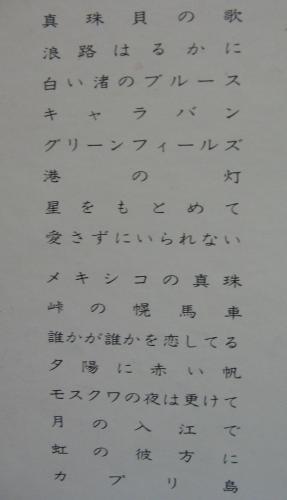 真珠貝の歌
浪路はるかに
白い渚のブルース
キャラバン
グリーンフィールズ
港の灯
星をもとめて
愛さずにいられない
メキシコの真珠
峠の幌馬車
誰かが誰かを恋してる
夕陽に赤い帆
モスクワの夜は更けて
月の入江で
虹の彼方に
カプリ島